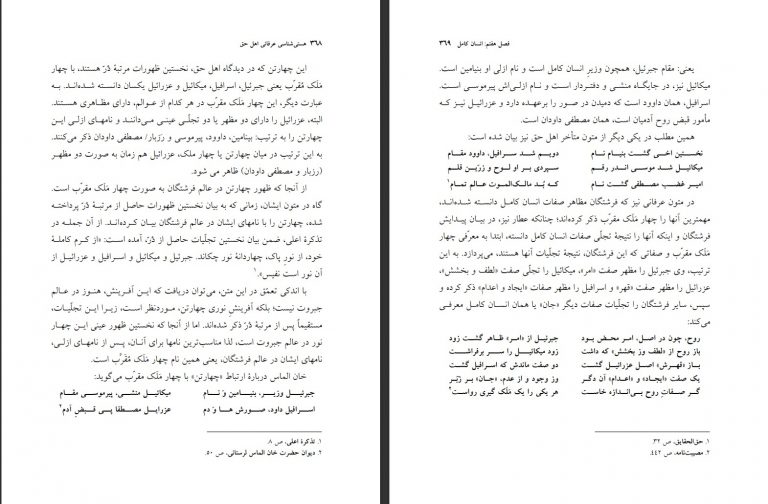 ۳۶۸ هستی‌شناسی عرفانی اهل حق
این چهارتن که در دیدگاه اهل حق، نخستین ظهورات مرتبهٔ دُرّ هستند، با چهار
مَلَک مُقرّب یعنی جبرئیل، اسرافیل، میکائیل و عزرائیل یکسان دانسته شده‌اند. به
عبارت دیگر، این چهار مَلَک مقرّب در هر کدام از عوالم، دارای مظاهری هستند.
البته، عزرائیل را دارای دو مظهر یا دو تجلّی عینی می‌دانند و نامهای ازلی این
چهارتن را به ترتیب: بنیامین، داوود، پیرموسی و رَزبار/ مصطفی داودان ذکر می‌کنند.
به این ترتیب در میان چهارتن یا چهار ملک، عزرائیل هم زمان به صورت دو مظهر
(رزبار و مصطفی داودان) ظاهر می شود.
از آنجا که ظهور چهارتن در عالم فرشتگان به صورت چهار مَلَک مقرّب است،
گاه در متون ایشان، زمانی که به بیان نخستین ظهورات حاصل از مرتبهٔ دُرّ پرداخته
شده، چهارتن را با نامهای ایشان در عالم فرشتگان بیان کرده‌اند. از آن جمله در
تذکرهٔ اعلی، ضمن بیان نخستین تجلّیات حاصل از دُرّ، آمده است: «از کرم کاملهٔ
خود، از نورِ پاک، چهاردانهٔ نور چکاند. جبرئیل و میکائیل و اسرافیل و عزرائیل از
آن نور است نفیس».۱
با اندکی تعمّق در این متن، می‌توان دریافت که این آفرینش، هنوز در عالم
جبروت نیست؛ بلکه آفرینش نوری چهارتن، موردنظر است، زیرا این تجلّیات،
مستقیماً پس از مرتبهٔ دُرّ ذکر شده‌اند. اما از آنجا که نخستین ظهور عینی این چهار
نور در عالم جبروت است، لذا مناسب‌ترین نامها برای آنان، پس از نامهای ازلی،
نامهای ایشان در عالم فرشتگان، یعنی همین نام چهار مَلَک مُقرّب است.
خان الماس دربارهٔ ارتباط «چهارتن» با چهار مَلَک مقرّب می‌گوید:
جبرئیل وزیر، بنیامین و نام میکائیل منشی، پیرموسی مقام
اسرافیل داود، صورش ها و دم عزرایل مصطفا پی قبض آدم۲
۱. تذکرهٔ اعلی، ص ۸.
۲. دیوان حضرت خان الماس لرستانی، ص ۵۰.
فصل هفتم: انسان کامل ۳۶۹
یعنی: مقام جبرئیل، همچون وزیرِ انسان کامل است و نام ازلی او بنیامین است.
میکائیل نیز، در جایگاه منشی و دفتردار است و نام ازلی‌اش پیرموسی است.
اسرافیل، همان داوود است که دمیدن در صور را برعهده دارد و عزرائیل نیز که
مأمور قبض روح آدمیان است، همان مصطفی داودان است.
همین مطلب در یکی از متون متأخر اهل حق نیز بیان شده است:
نخستین اخی گشت بنیام نام دویم شد سرافیل، داوود مقام
میکائیل شد موسی اندر رقم سپردی بر او لوح و زرّین قلم
امیر غضب مصطفی گشت نام که بُد مالک‌الموت عالم تمام۱
در متون عرفانی نیز که فرشتگان مظاهر صفات انسان کامل دانسته شده‌اند،
مهمترین آنها را چهار مَلَک مقرّب ذکر کرده‌اند؛ چنانکه عطار نیز، در بیان پیدایش
فرشتگان و اینکه آنها را نتیجهٔ تجلّی صفات انسان کامل دانسته، ابتدا به معرّفی چهار
مَلَک مقرب و صفاتی که این فرشتگان، نتیجهٔ تجلّیات آنها هستند، می‌پردازد. به این
ترتیب، وی جبرئیل را مظهر صفت «امر»، میکائیل را تجلّی صفت «لطف و بخشش»،
عزرائیل را مظهر صفت «قهر» و اسرافیل را مظهر صفات «ایجاد و اعدام» ذکر کرده و
سپس، سایر فرشتگان را تجلّیات صفات دیگر «جان» یا همان انسان کامل معرفی
می‌کند:
روح، چون در اصل، امر محض بود جبرئیل از «امر» ظاهر گشت زود
باز روح از «لطف وز بخشش» که داشت زود میکائیل را سر برفراشت
باز «قهر»ش اصل عزرائیل گشت دو صفت ماندش که اسرافیل گشت
یک صفت «ایجاد» و «اعدام» آن دگر وز وجود و از عدم، «جان» بر زَبَر
گر صفات روح بی‌اندازه خاست هر یکی را یک مَلَک گیری رواست۲
۱. حق‌الحقایق، ص ۳۲.
۲. مصیبت‌نامه، ص ۴۴۲.